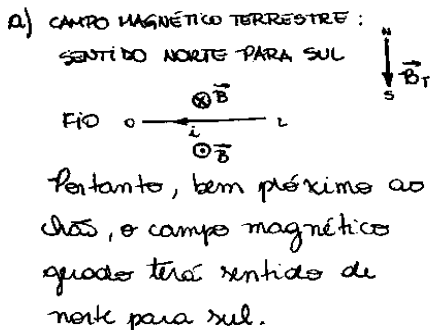 a) CAMPO MAGNÉTICO TERRESTRE:
SENTIDO NORTE PARA SUL
N
S
B⃗T
⊗ B⃗
FIO O i L
⊙ B⃗
Portanto, bem próximo ao
chão, o campo magnético
gerado terá sentido de
norte para sul.